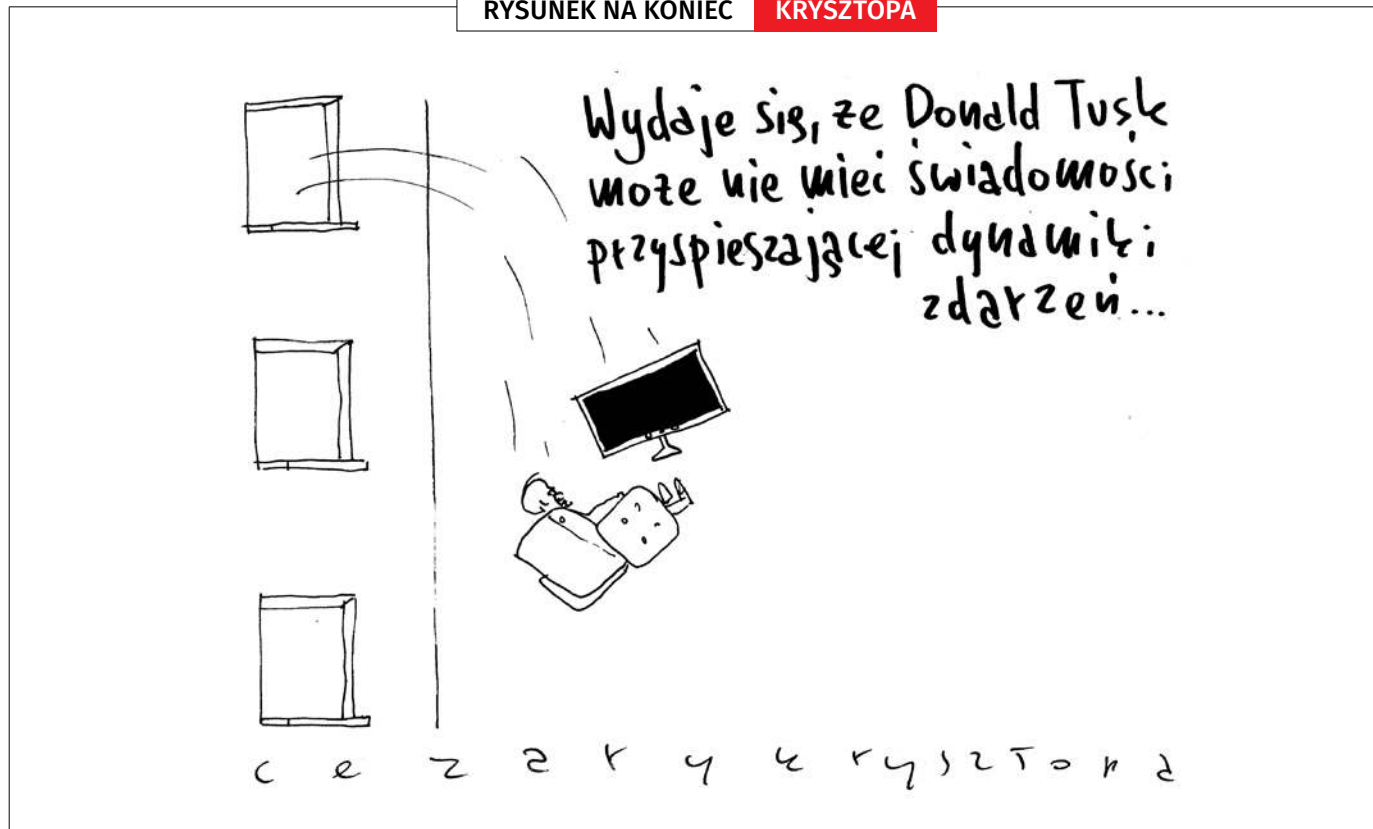 RYSUNEK NA KONIEC KRYSZTOPA
Wydaje się, że Donald Tusk
może nie mieć świadomości
przyspieszającej dynamiki
zdarzeń...
cezary krysztopa